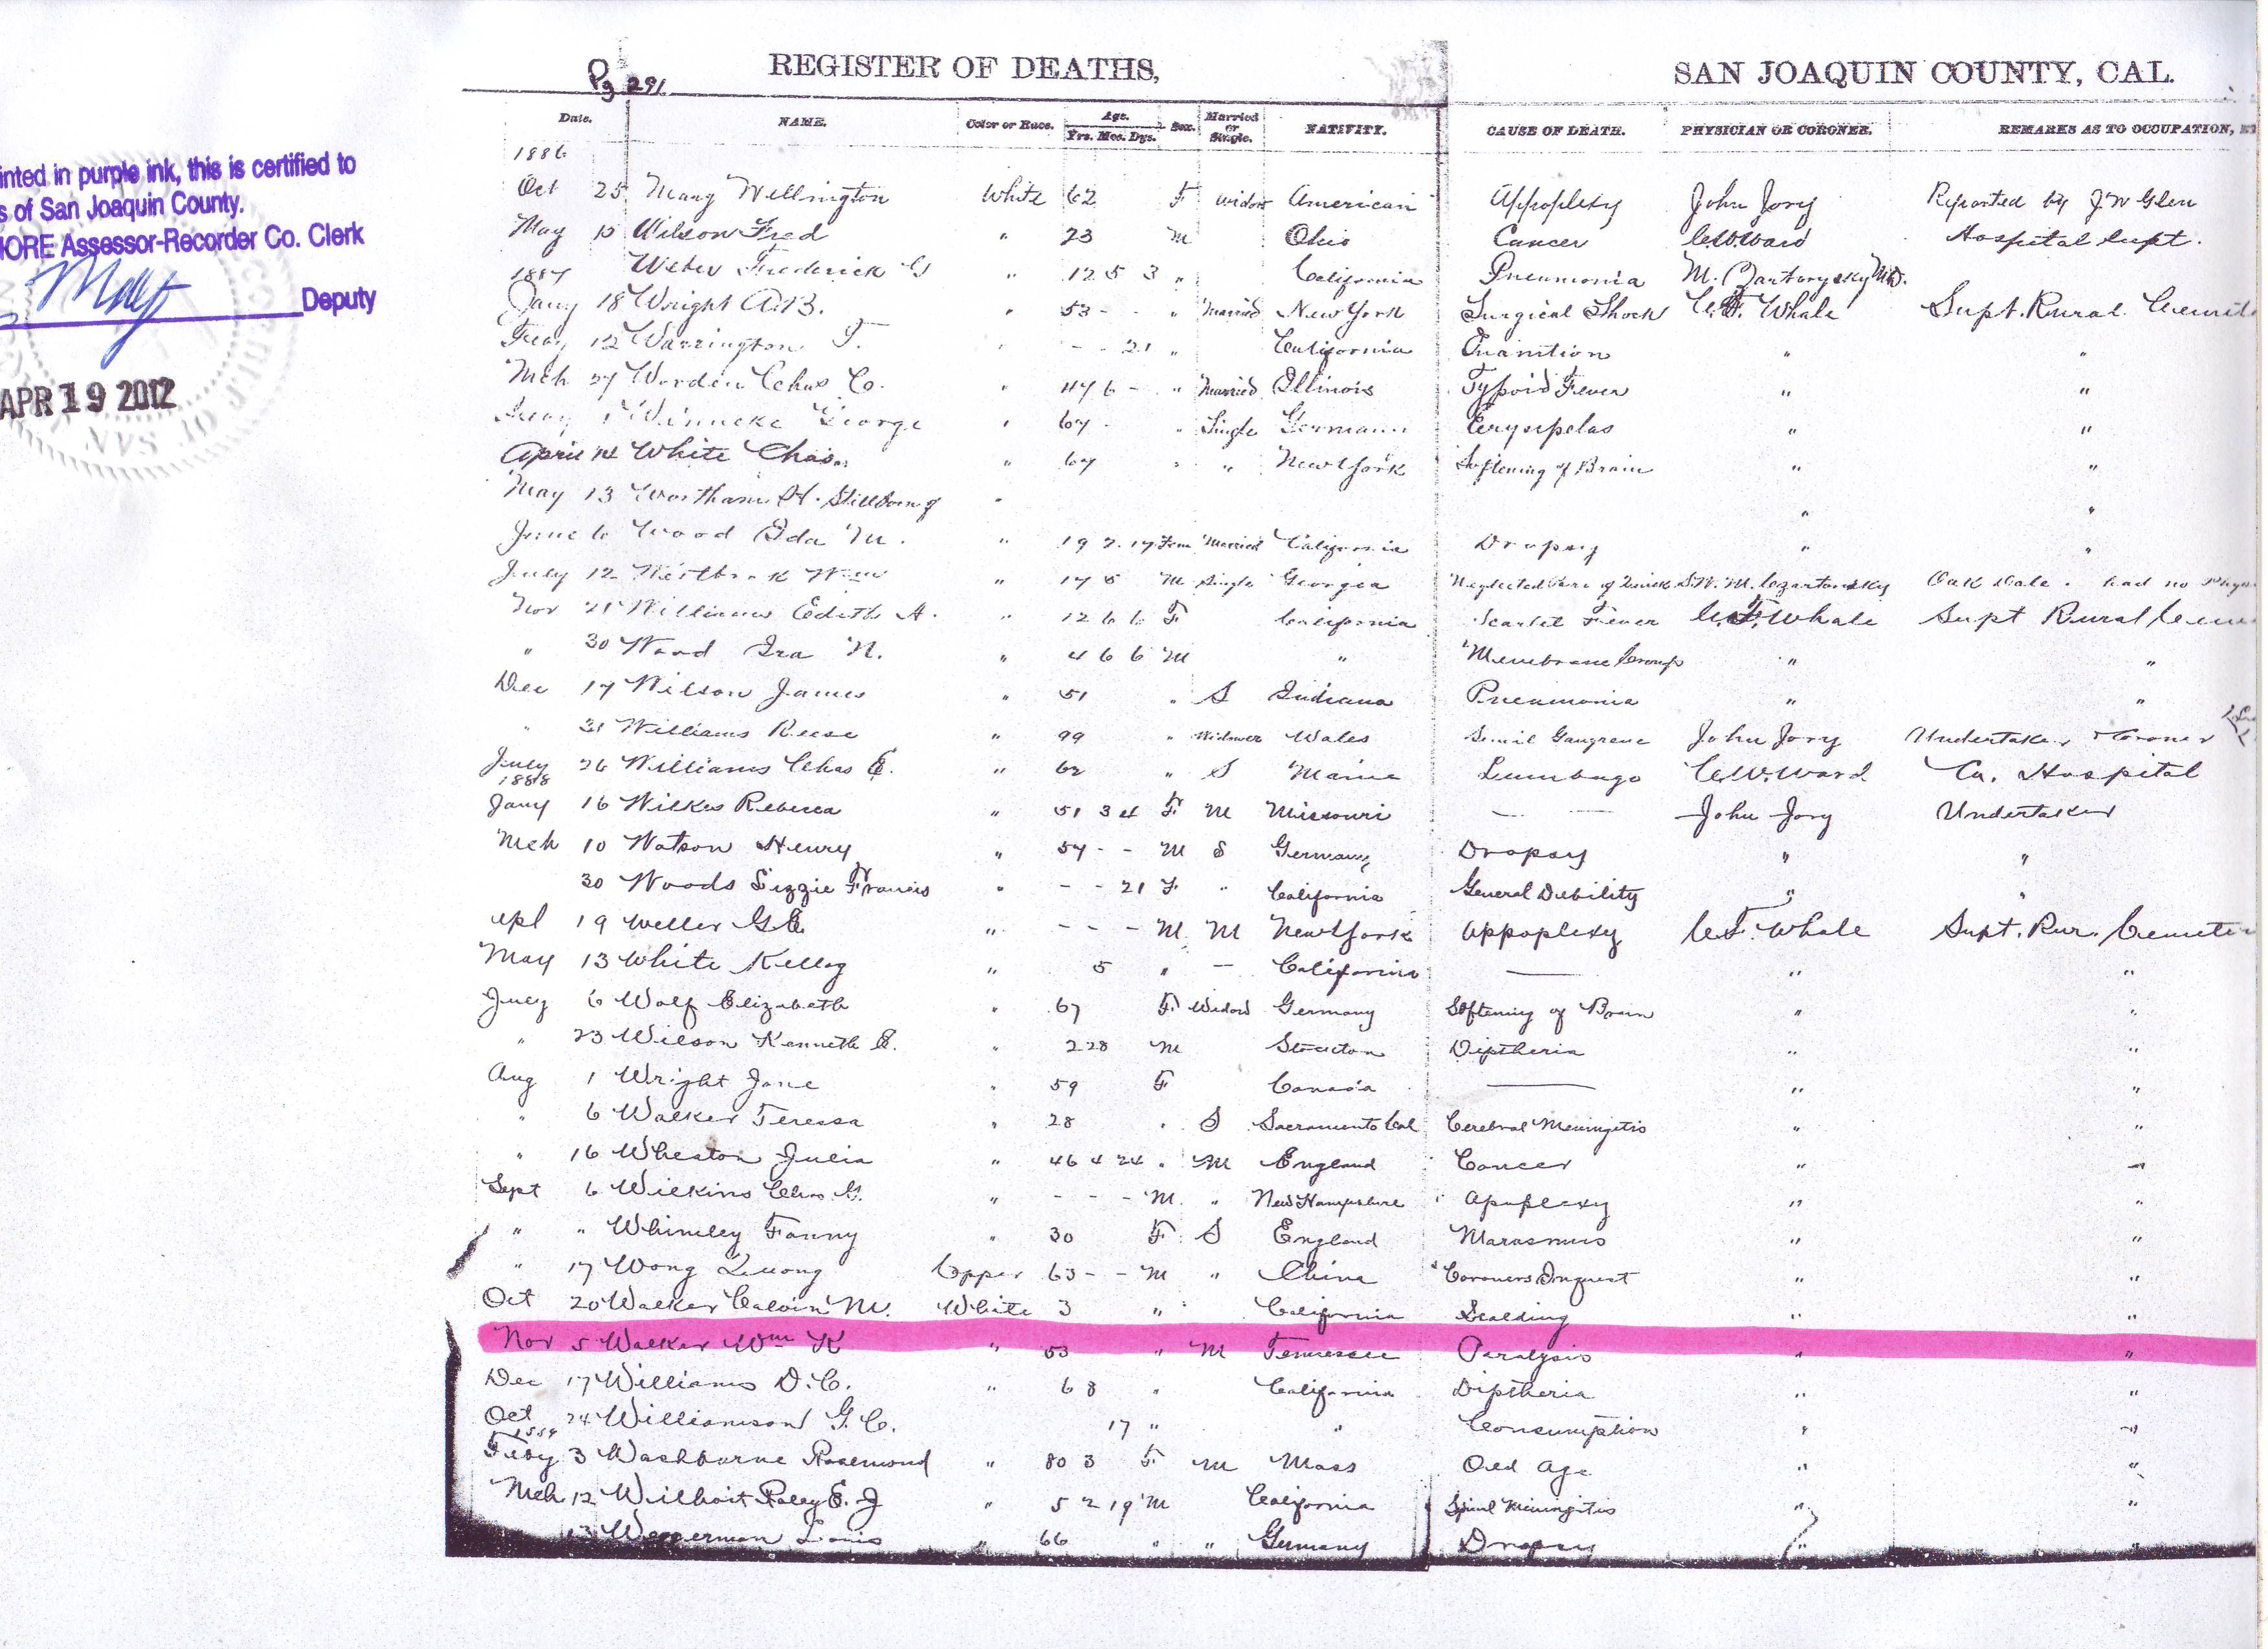 Pg 291
REGISTER OF DEATHS, SAN JOAQUIN COUNTY, CAL.
Date. NAME. Color or Race. Age. Yrs. Mos. Dys. Sex. Married or Single. NATIVITY. CAUSE OF DEATH. PHYSICIAN OR CORONER. REMARKS AS TO OCCUPATION,
inted in purple ink, this is certified to
s of San Joaquin County.
ORE Assessor-Recorder Co. Clerk
Deputy
APR 19 2012
1886
Oct 25 Mary Wellington White 62 F Widow American Appoplexy John Jory Reported by J W Glen
May 15 Wilson Fred " 23 M Ohio Cancer C W Ward Hospital Supt.
Weber Frederick G " 12 5 3 " California Pneumonia M. M.D.
1887
Jany 18 Wright A.B. " 53 - - " Married New York Surgical Shock C.F. Whale Supt. Rural Cemit
Feby 12 Warrington F. " - - 21 " California Inanition " "
Mch 27 Worden Chas C. " 47 6 - " Married Illinois Typoid Fever " "
George " 67 - " Single Germany Erysipelas " "
April 14 White Chas. " 67 " " New York Softening of Brain " "
May 13 Wortham H. Stillborn of " " "
June 6 Wood Ida M. " 19 2 17 Fem Married California Dropsy " "
July 12 Westbrook Wm " 17 5 M Single Georgia Neglected of S.W.M. Oak Dale. had no
Nov 21 Williams Edith A. " 12 6 6 F California Scarlet Fever C.F. Whale Supt Rural Cem
" 30 Wood Ira N. " 4 6 6 M " Membrane Croup " "
Dec 17 Wilson James " 51 " S Indiana Pneumonia " "
" 31 Williams Reese " 99 " Widower Wales Senil Gangrene John Jory Undertaker & Coroner
July 26 Williams Chas E. " 62 " S Maine Lumbago C.W. Ward Co. Hospital
1888
Jany 16 Wilkes Rebecca " 51 3 4 F M Missouri — — John Jory Undertaker
Mch 10 Watson Henry " 57 - - M S Germany Dropsy " "
30 Woods Lizzie Francis " - - 21 F " California General Debility " "
Apl 19 Weller G.E. " - - - M M New York Appoplexy C.F. Whale Supt. Rur. Cemete
May 13 White Kellog " 5 " - California — " "
July 6 Wolf Elizabeth " 67 F. Widow Germany Softening of Brain " "
" 23 Wilson Kenneth E. " 2 28 M Stockton Diptheria " "
Aug 1 Wright Jane " 59 F Canada — " "
" 6 Walker Teressa " 28 " S Sacramento Cal Cerebral Meningitis " "
" 16 Wheaton Julia " 46 4 24 " M England Cancer " "
Sept 6 Wilkins Chas. G. " - - - M. " New Hampshire Apoplexy " "
" " Whimley Fanny " 30 F S England Marasmus " "
" 17 Wong Quong Copper 63 - - M " China Coroners Inquest " "
Oct 20 Walker Calvin M. White 3 " California Scalding " "
Nov 5 Walker Wm K " 53 " M Tennessee Paralysis " "
Dec 17 Williams D.C. " 6 8 " California Diptheria " "
Oct 24 Williamson G.C. 17 " " Consumption " "
1889
Feby 3 Washburne Rosemond " 80 3 F M Mass Old Age " "
Mch 12 Wilhoit Raley E. J " 5 2 19 M California Spinal Meningitis " "
13 Louis " 66 " " Germany Dropsy " "